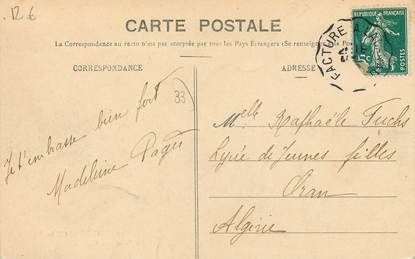 12.6
CARTE POSTALE
La Correspondance au recto n'est pas acceptée par tous les Pays Étrangers (Se renseigner
CORRESPONDANCE
ADRESSE
FACTURE
RÉPUBLIQUE FRANÇAISE
5c
POSTES
33
Je t'embrasse bien fort
Madeleine Pagès
Melle Raphaële Fuchs
Lycée de Jeunes filles
Oran
Algérie